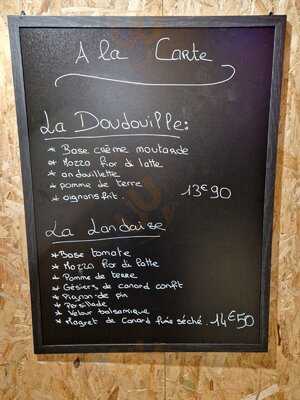 A la Carte
La Doudouille:
* Base crème moutarde
* Mozza fior di latte
* andouillette
* pomme de terre
* oignons frit. 13€90
La Landaise
* Base tomate
* Mozza fior di latte
* Pomme de terre
* Gésiers de canard confit
* Pignon de pin
* Persillade
* Velour balsamique
* Magret de canard fumé séché. 14€50